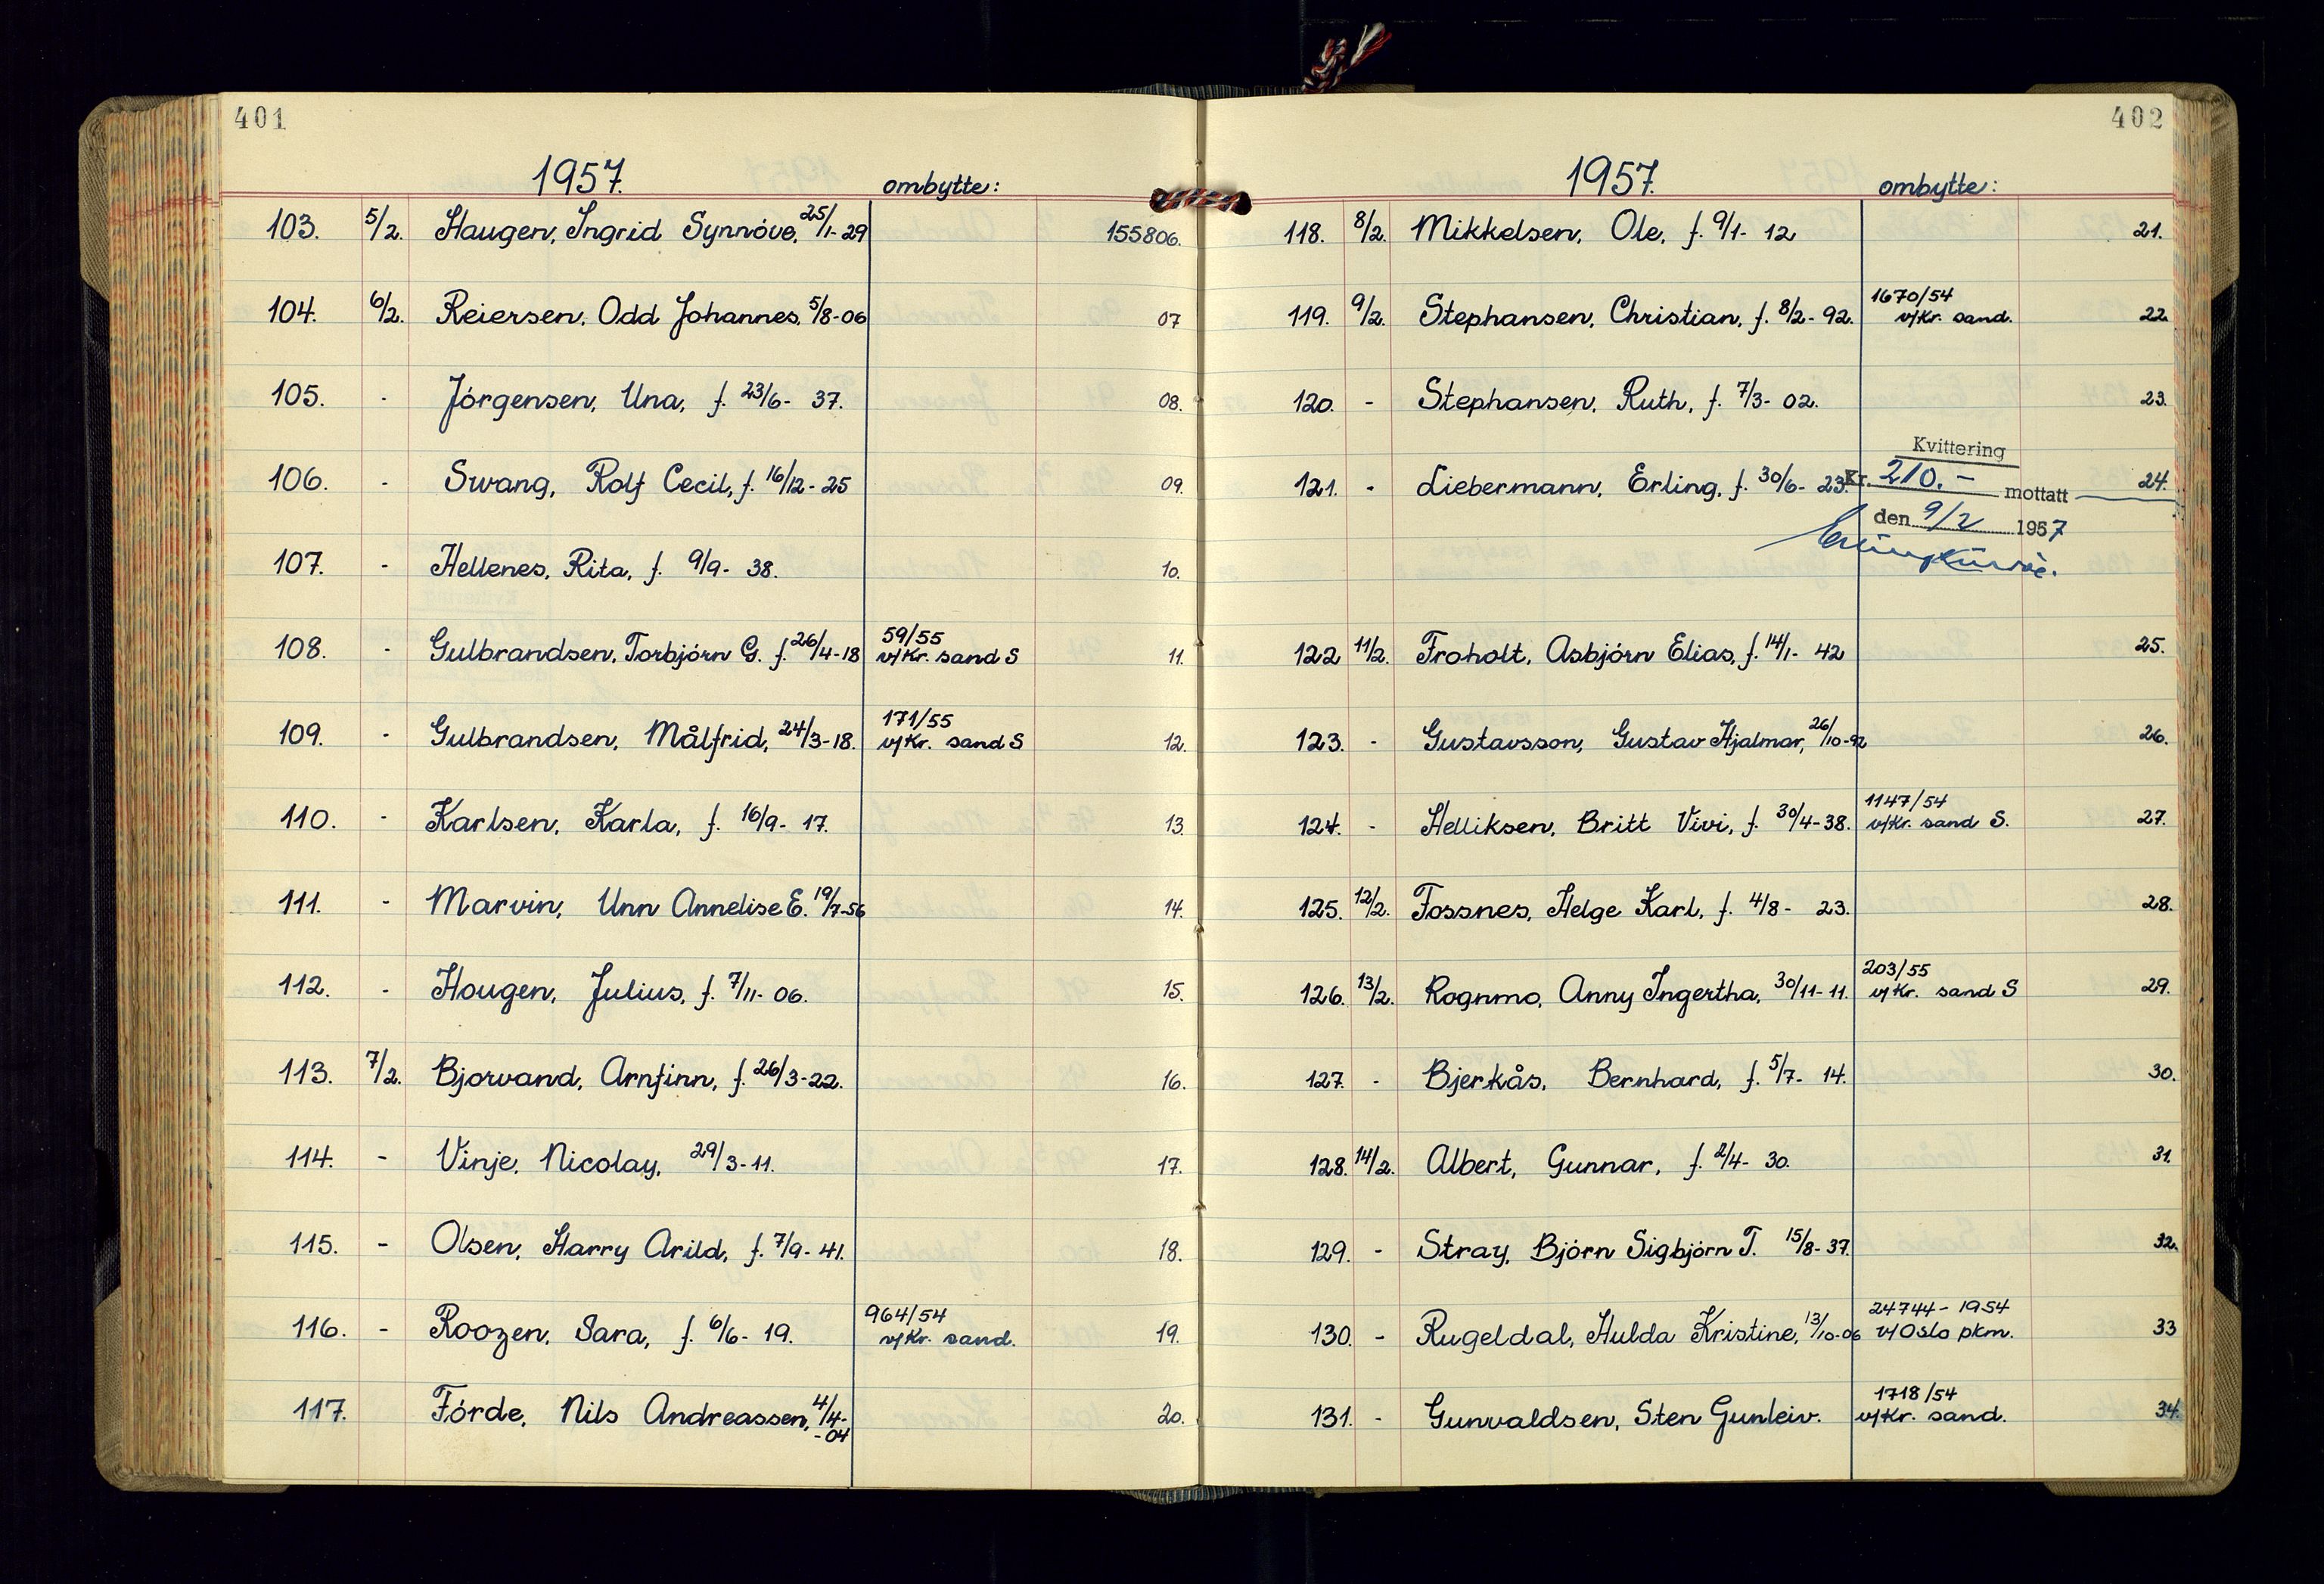 401
1957. ombytte:
103. 5/2. Haugen, Ingrid Synnóve, 25/1-29 155806.
104. 6/2. Reiersen, Odd Johannes, 5/8-06 07
105. - Jórgensen, Una, f. 23/6- 37. 08.
106. - Swang, Rolf Cecil, f. 16/12-25 09.
107. - Hellenes, Rita, f. 9/9- 38. 10.
108. - Gulbrandsen, Torbjórn G. f. 26/4-18 59/55 v/Kr. sand S 11.
109. - Gulbrandsen, Målfrid, 24/3-18. 171/55 v/Kr. sand S 12.
110. - Karlsen, Karla, f. 16/9- 17. 13.
111. - Marvin, Unn Annelise E. 19/7-56 14.
112. - Hougen, Julius, f. 7/11- 06. 15.
113. 7/2. Bjorvand, Arnfinn, f. 26/3-22. 16.
114. - Vinje, Nicolay, 29/3-11. 17.
115. - Olsen, Harry Arild, f. 7/9-41. 18.
116. - Roozen, Sara, f. 6/6- 19. 964/54 v/Kr. sand. 19.
117. Fórde, Nils Andreassen, 4/4- -04 20.
402
1957. ombytte:
118. 8/2. Mikkelsen, Ole, f. 9/1- 12 21.
119. 9/2. Stephansen, Christian, f. 8/2-92. 1670/54 v/Kr. sand. 22.
120. - Stephansen, Ruth, f. 7/3- 02. 23.
121. - Liebermann, Erling, f. 30/6- 23. 24.
Kvittering
Kr. 210.- mottatt
den 9/2 1957
122 11/2. Froholt, Asbjórn Elias, f. 14/1- 42 25.
123. - Gustavsson, Gustav Hjalmar, 26/10-92 26.
124. - Helliksen, Britt Vivi, f. 30/4-38. 1147/54 v/Kr. sand S. 27.
125. 12/2. Fossnes, Helge Karl, f. 4/8- 23. 28.
126. 13/2. Rognmo, Anny Ingertha, 30/11-11. 203/55 v/Kr. sand S 29.
127. - Bjerkås, Bernhard, f. 5/7- 14. 30.
128. 14/2. Albert, Gunnar, f. 2/4- 30. 31.
129. - Stray, Bjórn Sigbjórn T. 15/8-37. 32.
130. - Rugeldal, Hulda Kristine, 13/10-06 24744-1954 v/Oslo pkm. 33
131. - Gunvaldsen, Sten Gunleiv. 1718/54 v/Kr. sand. 34.